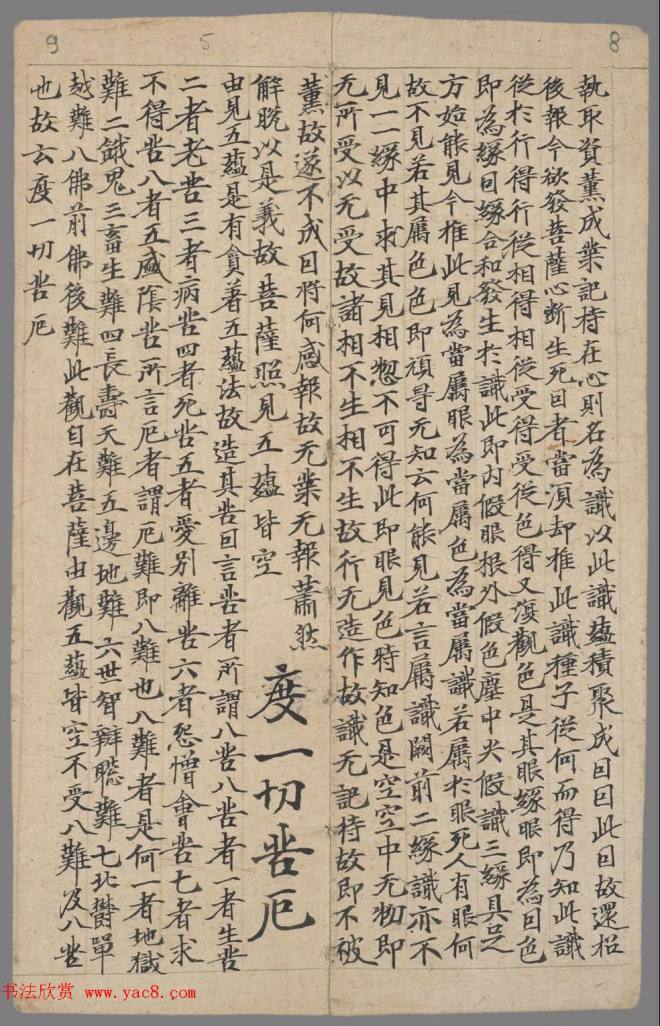 8
執取資薰成業記持在心則名為識以此識蘊積聚成囙囙此囙故還招
後報今欲發菩薩心斷生死囙者當須却推此識種子從何而得乃知此識
從於行得行從相得相從受得受從色得又復觀色是其眼緣眼即為囙色
即為緣囙緣合和發生於識此即內假眼根外假色塵中央假識三緣具足
方始能見今推此見為當屬眼為當屬色為當屬識若屬於眼死人有眼何
故不見若其屬色色即頑㝵无知云何能見若言屬識闕前二緣識亦不
見一一緣中求其見相惣不可得此即眼見色時知色是空空中无物即
无所受以无受故諸相不生相不生故行无造作故識无記持故即不被
5
薰故遂不成囙將何感報故无業无報蕭然
解脫以是義故菩薩照見五蘊皆空
度一切苦厄
由見五蘊是有貪著五蘊法故造其苦囙言苦者所謂八苦八苦者一者生苦
二者老苦三者病苦四者死苦五者愛別離苦六者怨憎會苦七者求
不得苦八者五盛陰苦所言厄者謂厄難即八難也八難者是何一者地獄
難二餓鬼三畜生難四長壽天難五邊地難六世智辯聰難七北鬱單
越難八佛前佛後難此觀自在菩薩由觀五蘊皆空不受八難及八苦
也故云度一切苦厄
9
书法欣赏 www.yac8.com